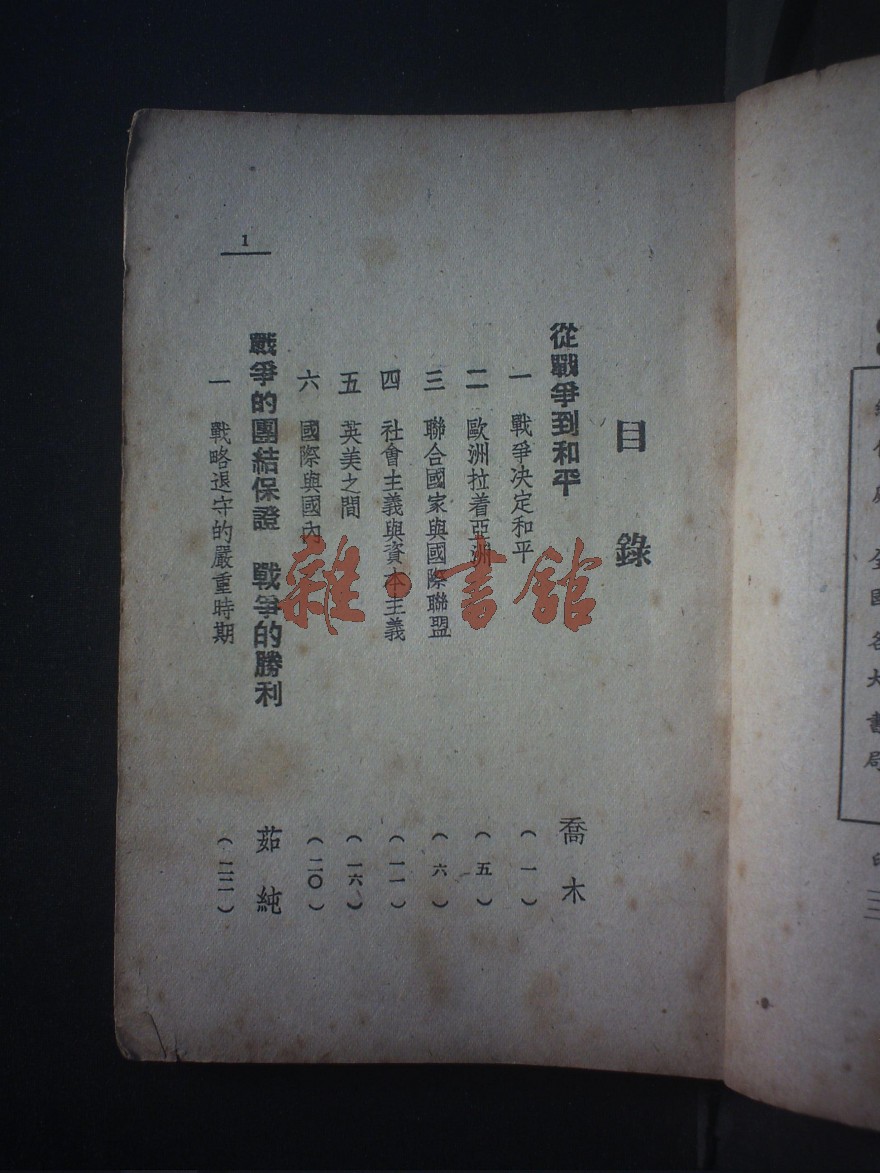 全國各大書局
目錄
從戰爭到和平 喬木
一 戰爭决定和平 (一)
二 歐洲拉着亞洲 (五)
三 聯合國家與國際聯盟 (六)
四 社會主義與資本主義 (一一)
五 英美之間 (一六)
六 國際與國內 (二〇)
戰爭的團結保證 戰爭的勝利 茹純
一 戰略退守的嚴重時期 (二二)
1
雜·書館